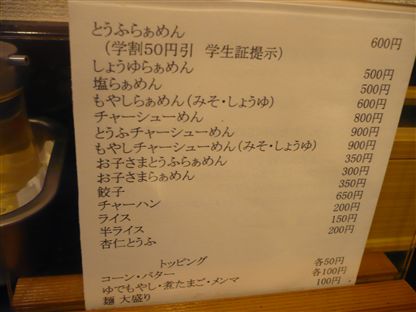 とうふらぁめん 600円
（学割50円引 学生証提示）
しょうゆらぁめん 500円
塩らぁめん 500円
もやしらぁめん（みそ・しょうゆ） 600円
チャーシューめん 800円
とうふチャーシューめん 900円
もやしチャーシューめん（みそ・しょうゆ） 900円
お子さまとうふらぁめん 350円
お子さまらぁめん 300円
餃子 350円
チャーハン 650円
ライス 200円
半ライス 150円
杏仁とうふ 200円
トッピング
コーン・バター 各50円
ゆでもやし・煮たまご・メンマ 各100円
麺 大盛り 100円